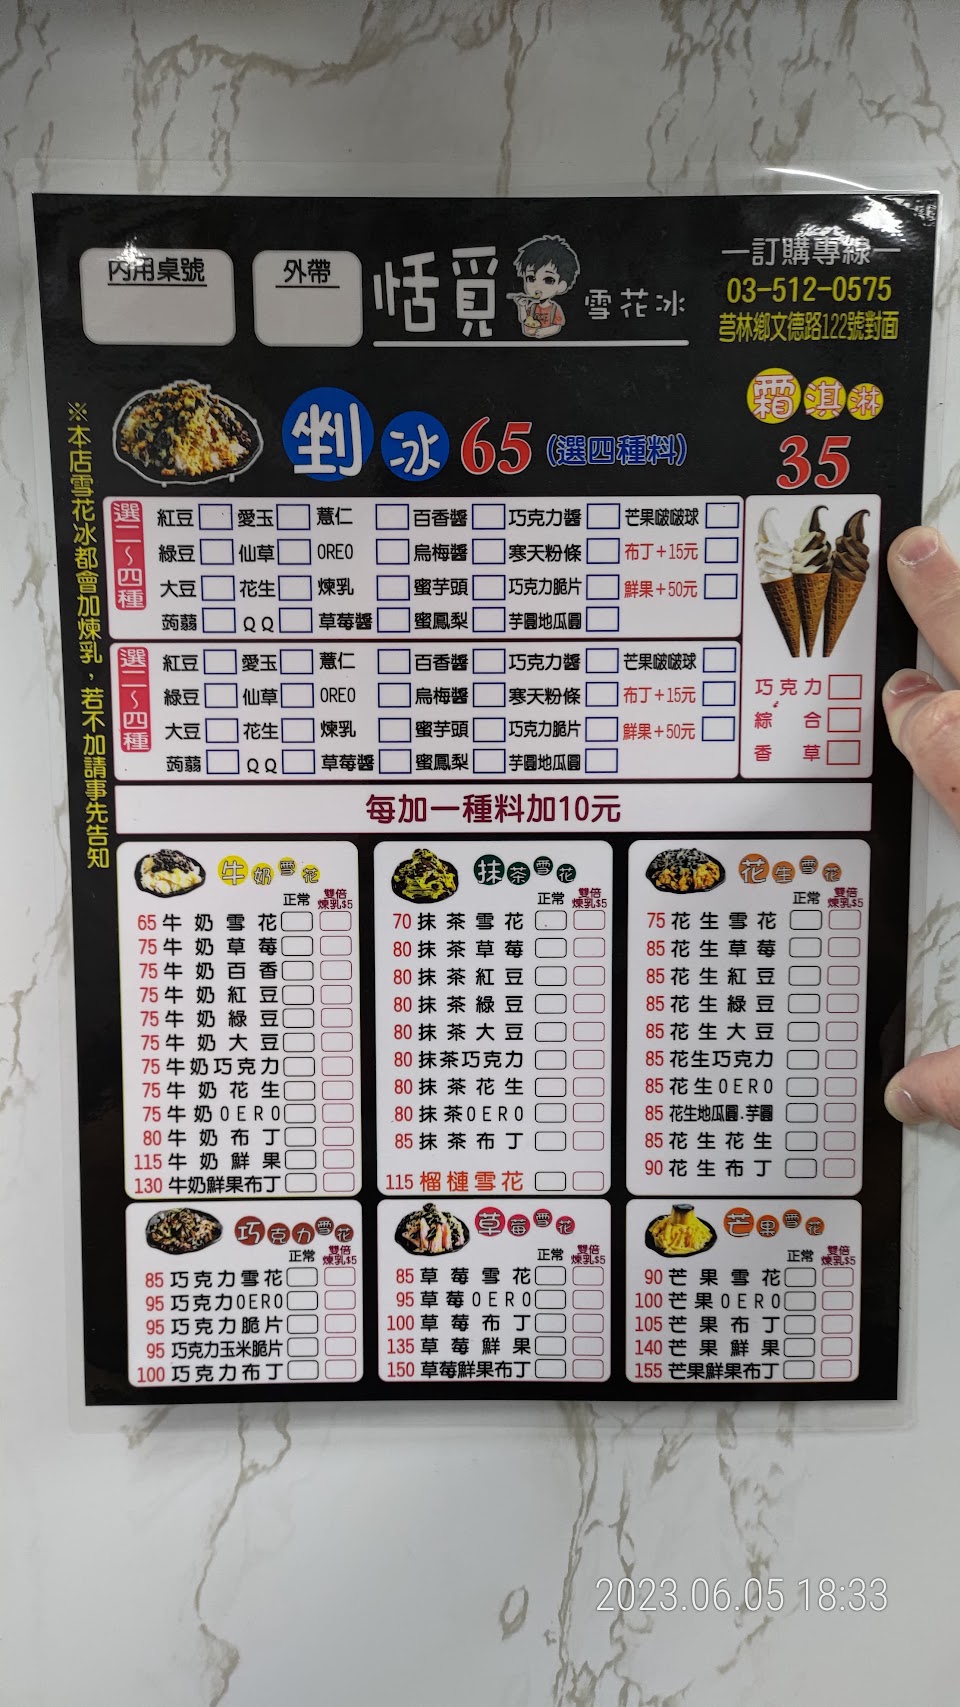 內用桌號
外帶
恬覓
雪花冰
一訂購專線一
03-512-0575
芎林鄉文德路122號對面
※本店雪花冰都會加煉乳，若不加請事先告知
剉冰 65 (選四種料)
霜淇淋
35
選二~四種
紅豆 愛玉 薏仁 百香醬 巧克力醬 芒果啵啵球
綠豆 仙草 OREO 烏梅醬 寒天粉條 布丁+15元
大豆 花生 煉乳 蜜芋頭 巧克力脆片 鮮果+50元
蒟蒻 QQ 草莓醬 蜜鳳梨 芋圓地瓜圓
選二~四種
紅豆 愛玉 薏仁 百香醬 巧克力醬 芒果啵啵球
綠豆 仙草 OREO 烏梅醬 寒天粉條 布丁+15元
大豆 花生 煉乳 蜜芋頭 巧克力脆片 鮮果+50元
蒟蒻 QQ 草莓醬 蜜鳳梨 芋圓地瓜圓
巧克力
綜合
香草
每加一種料加10元
牛奶雪花
正常 雙倍煉乳$5
65 牛奶雪花
75 牛奶草莓
75 牛奶百香
75 牛奶紅豆
75 牛奶綠豆
75 牛奶大豆
75 牛奶巧克力
75 牛奶花生
75 牛奶OERO
80 牛奶布丁
115 牛奶鮮果
130 牛奶鮮果布丁
抹茶雪花
正常 雙倍煉乳$5
70 抹茶雪花
80 抹茶草莓
80 抹茶紅豆
80 抹茶綠豆
80 抹茶大豆
80 抹茶巧克力
80 抹茶花生
80 抹茶OERO
85 抹茶布丁
115 榴槤雪花
花生雪花
正常 雙倍煉乳$5
75 花生雪花
85 花生草莓
85 花生紅豆
85 花生綠豆
85 花生大豆
85 花生巧克力
85 花生OERO
85 花生地瓜圓.芋圓
85 花生花生
90 花生布丁
巧克力雪花
正常 雙倍煉乳$5
85 巧克力雪花
95 巧克力OERO
95 巧克力脆片
95 巧克力玉米脆片
100 巧克力布丁
草莓雪花
正常 雙倍煉乳$5
85 草莓雪花
95 草莓OERO
100 草莓布丁
135 草莓鮮果
150 草莓鮮果布丁
芒果雪花
正常 雙倍煉乳$5
90 芒果雪花
100 芒果OERO
105 芒果布丁
140 芒果鮮果
155 芒果鮮果布丁
2023.06.05 18:33